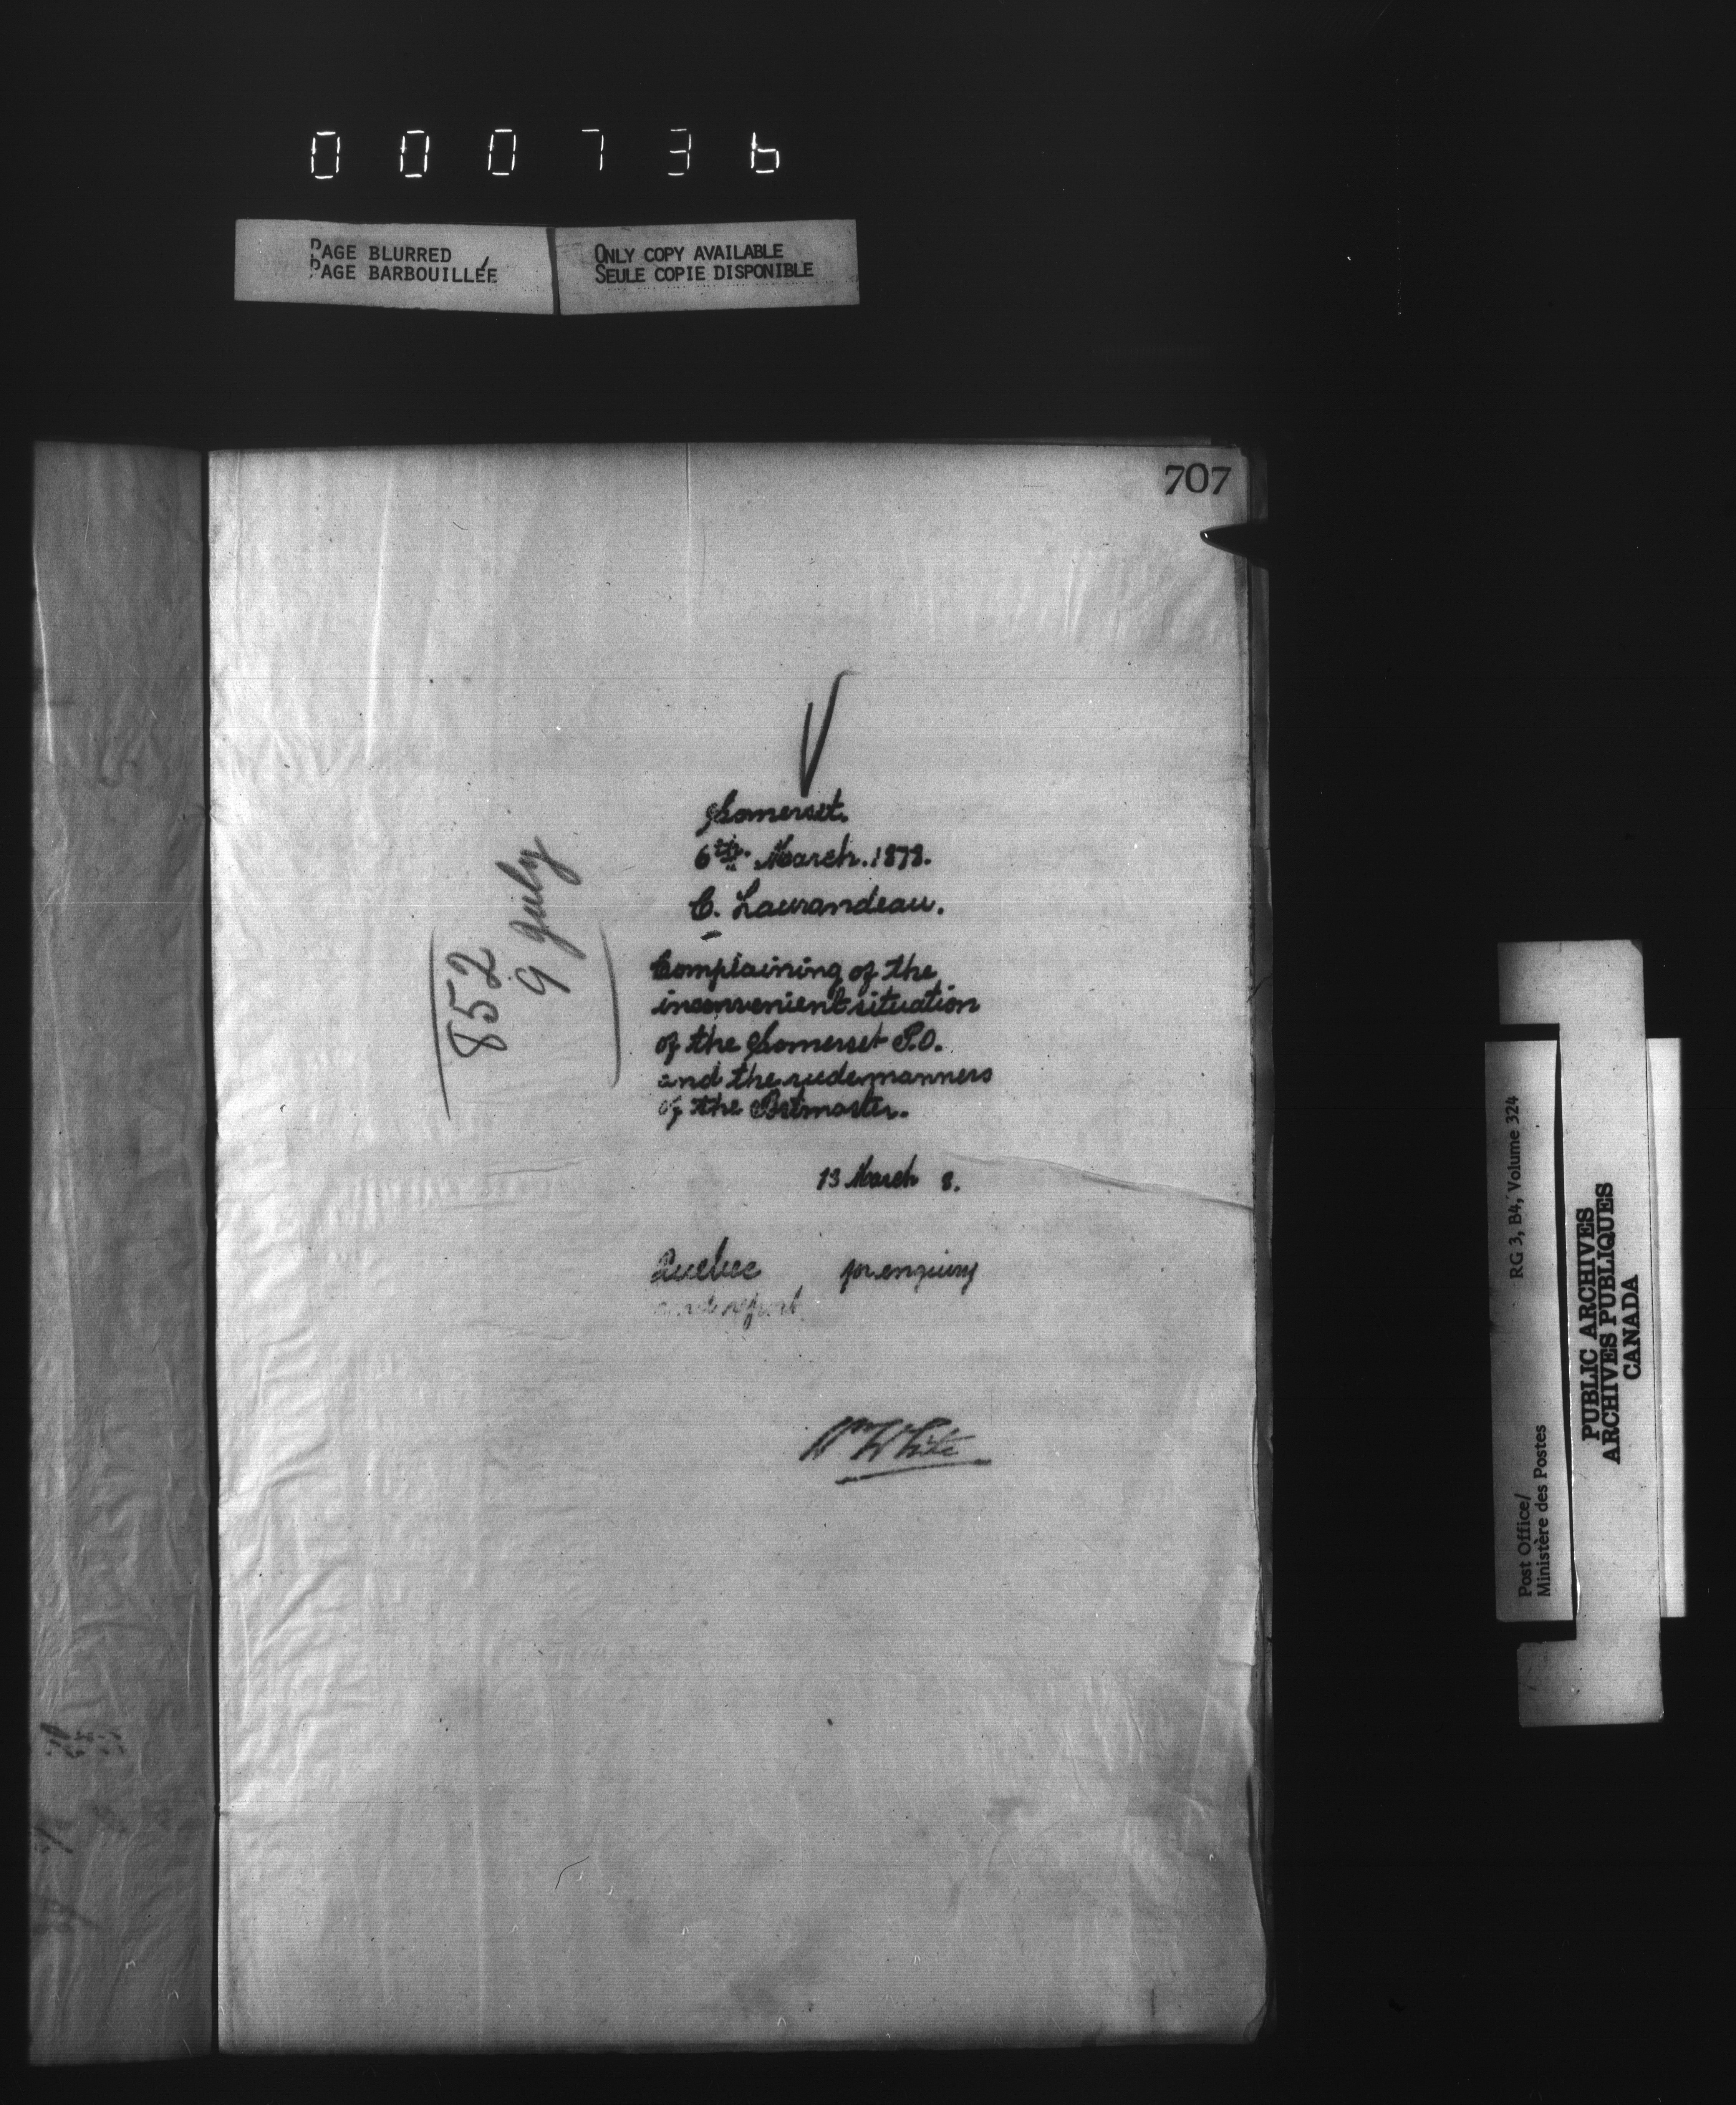 000736
PAGE BLURRED
PAGE BARBOUILLÉE
ONLY COPY AVAILABLE
SEULE COPIE DISPONIBLE
707
Somerset.
6th. March. 1878.
C. Laurandeau.
Complaining of the
inconvenient situation
of the Somerset P.O.
and the rude manners
of the Postmaster.
852
9 July
13 March 8.
Quebec for enquiry
and report.
Wm White
Post Office/
Ministère des Postes
RG 3, B4, Volume 324
PUBLIC ARCHIVES
ARCHIVES PUBLIQUES
CANADA